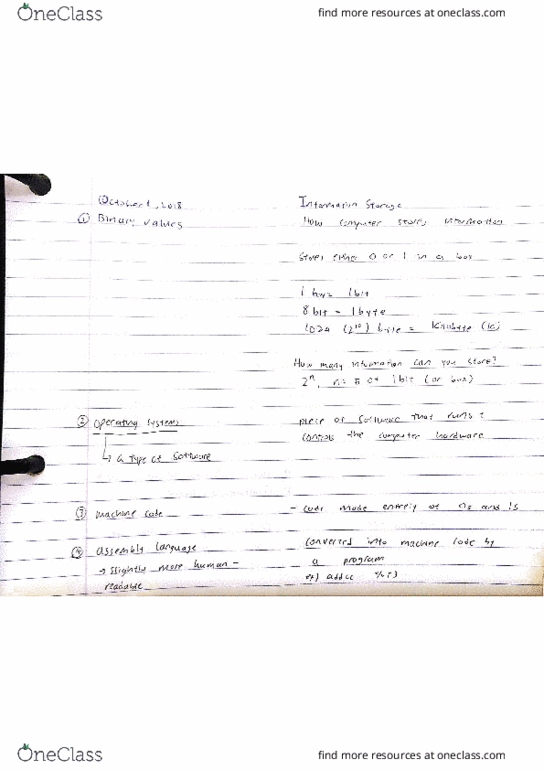 OneClass
find more resources at oneclass.com
October 1, 2018
Information Storage
① Binary values
How computer stores information
Stores either 0 or 1 in a box
1 box = 1 bit
8 bit = 1 byte
1024 (2¹⁰) byte = Kilobyte (K)
How many information can you store?
2ⁿ, n = # of 1 bit (or box)
② Operating Systems
piece of software that runs &
↳ a type of software
controls the computer hardware
③ machine code
- code made entirely of 0s and 1s
④ assembly language
converted into machine code by
→ slightly more human-
a program
readable
ex)
OneClass
find more resources at oneclass.com